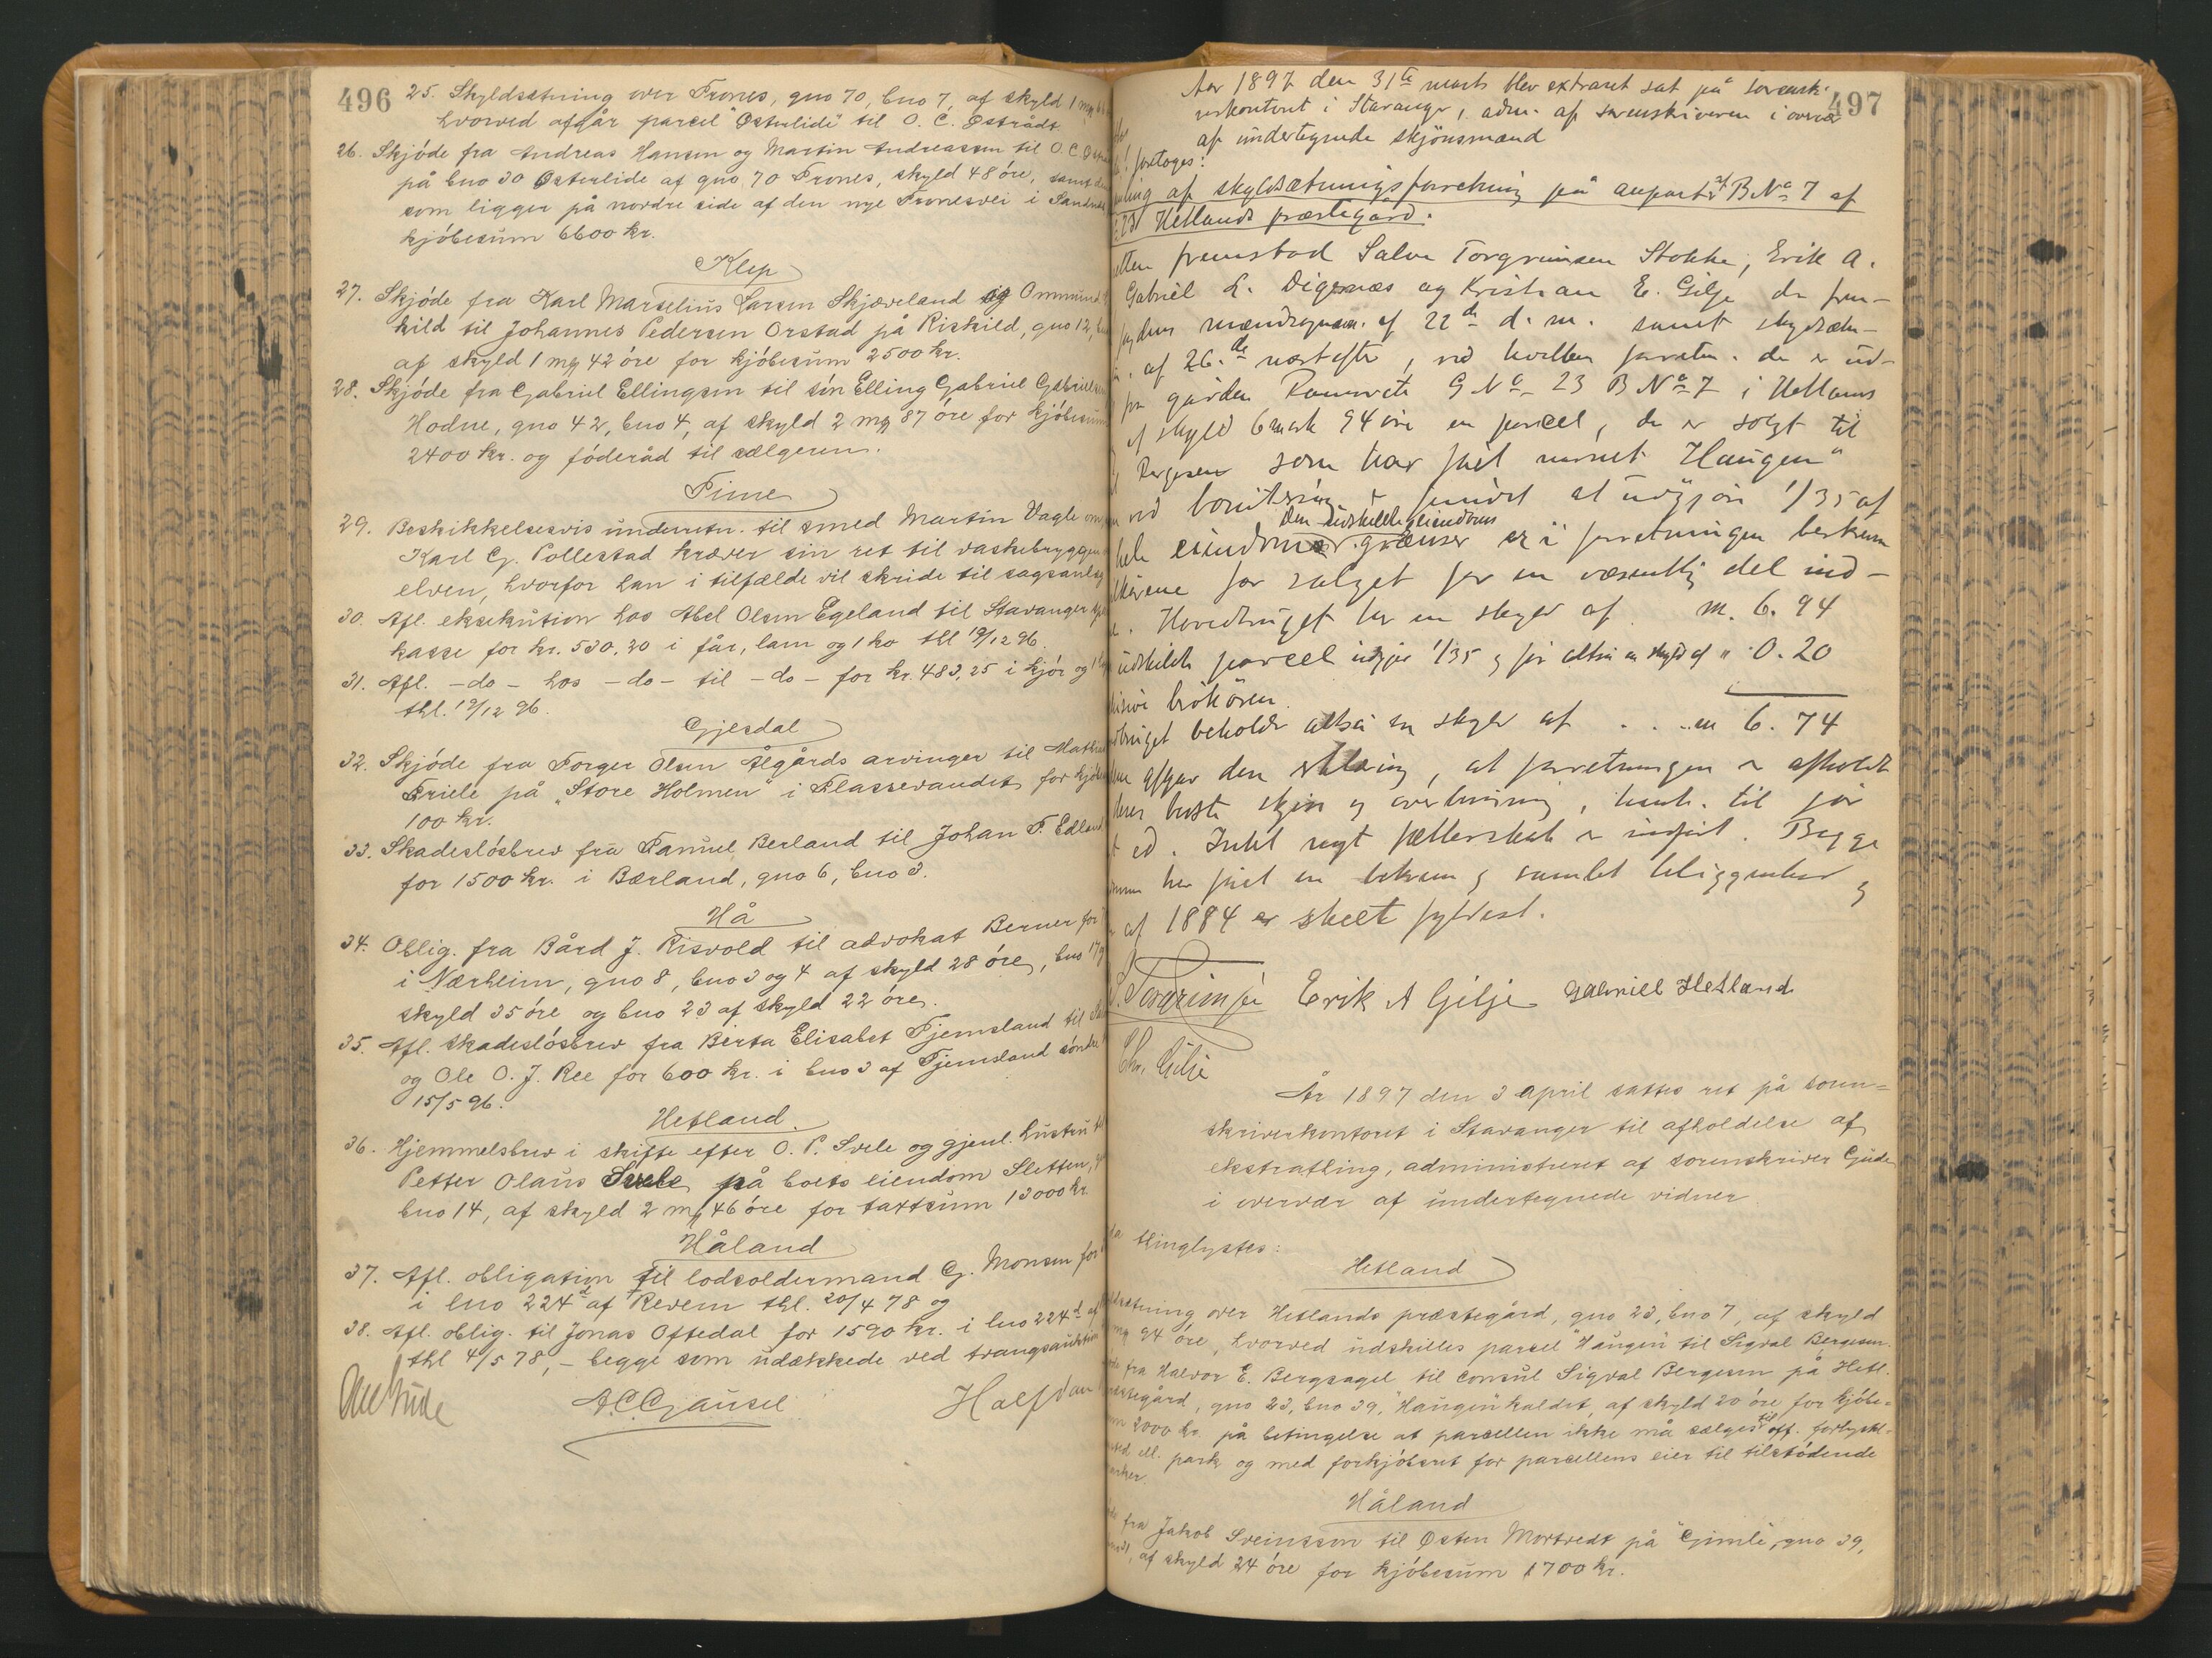 496
25. Skyldsætning over Trones, gno 70, bno 7, af skyld 1 mg
hvorved afgår parcel "Østerlide" til O. C. Østrådt
26. Skjöde fra Andreas Hansen og Martin Andreassen til O. C.
på bno 30 Østerlide af gno 70 Trones, skyld 48 öre, samt
som ligger på nordre side af den nye Tronesvei i Sandnes
kjöbesum 6600 kr.
Klep
27. Skjöde fra Karl Marselius Larsen Skjæveland og Ommund
kild til Johannes Pedersen Orstad på Riskild, gno 12,
af skyld 1 mg 42 öre for kjöbesum 2500 kr.
28. Skjöde fra Gabriel Ellingsen til sön Elling Gabriel Gabrielsen
Hodne, gno 42, bno 4, af skyld 2 mg 87 öre for kjöbesum
2400 kr. og föderåd til sælgeren.
Time
29. Beskikkelsesvis underretn. til smed Martin Vagle om,
Karl G. Pollestad kræver sin ret til vaskebryggen
elven, hvorfor han i tilfælde vil skride til sagsanlæg
30. Afl. eksekution hos Abel Olsen Egeland til Stavanger
kasse for kr. 530,20 i får, lam og 1 ko thl 19/12 96.
31. Afl. - do - hos - do - til - do - for kr. 483,25 i kjör og 1
thl. 19/12 96.
Gjesdal
32. Skjöde fra Torger Olsen Ålgårds arvinger til
Friele på "Store Holmen" i Flassevandet for
100 kr.
33. Skadeslösbrev fra Samuel Berland til Johan T. Edland
for 1500 kr. i Bærland, gno 6, bno 3.
Hå
34. Oblig. fra Bård J. Risvold til advokat Berner for
i Nærheim, gno 8, bno 3 og 4 af skyld 28 öre, bno 17
skyld 35 öre og bno 23 af skyld 22 öre.
35. Afl. skadeslösbrev fra Berta Elisabet Tjemsland til
og Ole O. J. Ree for 600 kr. i bno 3 af Tjemsland söndre
15/5 96.
Hetland.
36. Hjemmelsbrev i skifte efter O. P. Svele og gjenl. hustru til
Petter Olaus Svele på boets eiendom Sletten,
bno 14, af skyld 2 mg 46 öre for taxtsum 13000 kr.
Håland
37. Afl. obligation til lodsoldermand G. Monsen for
i lno 224d af Revem thl. 20/4 78 og
38. Afl. oblig. til Jonas Oftedal for 1590 kr. i lno 224d af
thl 4/5 78, - begge som udækkede ved tvangsauktion
A. C. Gausel
Halfdan
497
Aar 1897 den 31te marts blev extraret sat på sorensk-
verkontoret i Stavanger, adm. af sorenskriveren i overvær
af undertegnede skjönsmænd
foretoges:
af skyldsætningsforretning på anpart af BNo 7 af
23 Hetlands præstegård.
fremstod Salve Torgrimsen Stokke, Erik A.
Gabriel L. Digernæs og Kristian E. Gilje der frem-
mændsopnævn. af 22de d. m. samt skyldsætn-
af 26de næstefter, ved hvilken forretn. der er ud-
fra gården G No 23 B No 7 i Hetlands
af skyld 6 mark 94 öre en parcel, der er solgt til
Bergesen som har fået navnet "Haugen"
ved bonitering er fundet at udgjöre 1/35 af
hele eiendommen. den udskilte eiendoms grænser er i forretningen beskrevne
for salget for en væsentlig del ind-
Hovedbruget har en skyld af m. 6. 94
udskilte parcel udgjör 1/35 og får altså en skyld af " 0. 20
bröken.
bruget beholder altså en skyld af . . . m 6. 74
afgav den erklæring, at forretningen er afholdt
bedste skjön og overbevisning, henh. til för
ed. Intet nyt fællesskab er indfört. Begge
har fået en bekvem og samlet beliggenhed og
af 1884 er skeet fyldest.
Erik A Gilje Gabriel Hetland
Chr. Gilje
År 1897 den 3 april sattes ret på soren=
skriverkontoret i Stavanger til afholdelse af
ekstrathing, administreret af sorenskriver Gude
i overvær af undertegnede vidner
thinglystes:
Hetland
over Hetlands præstegård, gno 23, bno 7, af skyld
mg 94 öre, hvorved udskilles parcel "Haugen" til Sigval Bergesen.
fra Halvor E. Bergsagel til consul Sigval Bergesen på Hetl.
præstegård, gno 23, bno 39, "Haugen" kaldet, af skyld 20 öre for kjöbe=
2000 kr. på betingelse at parcellen ikke må sælges til off. forlyst-
ell. park og med forkjöbsret for parcellens eier til tilstödende
Håland
fra Jakob Sveinsson til Østen Mortvedt på "Gimle", gno 39,
af skyld 24 öre for kjöbesum 1700 kr.